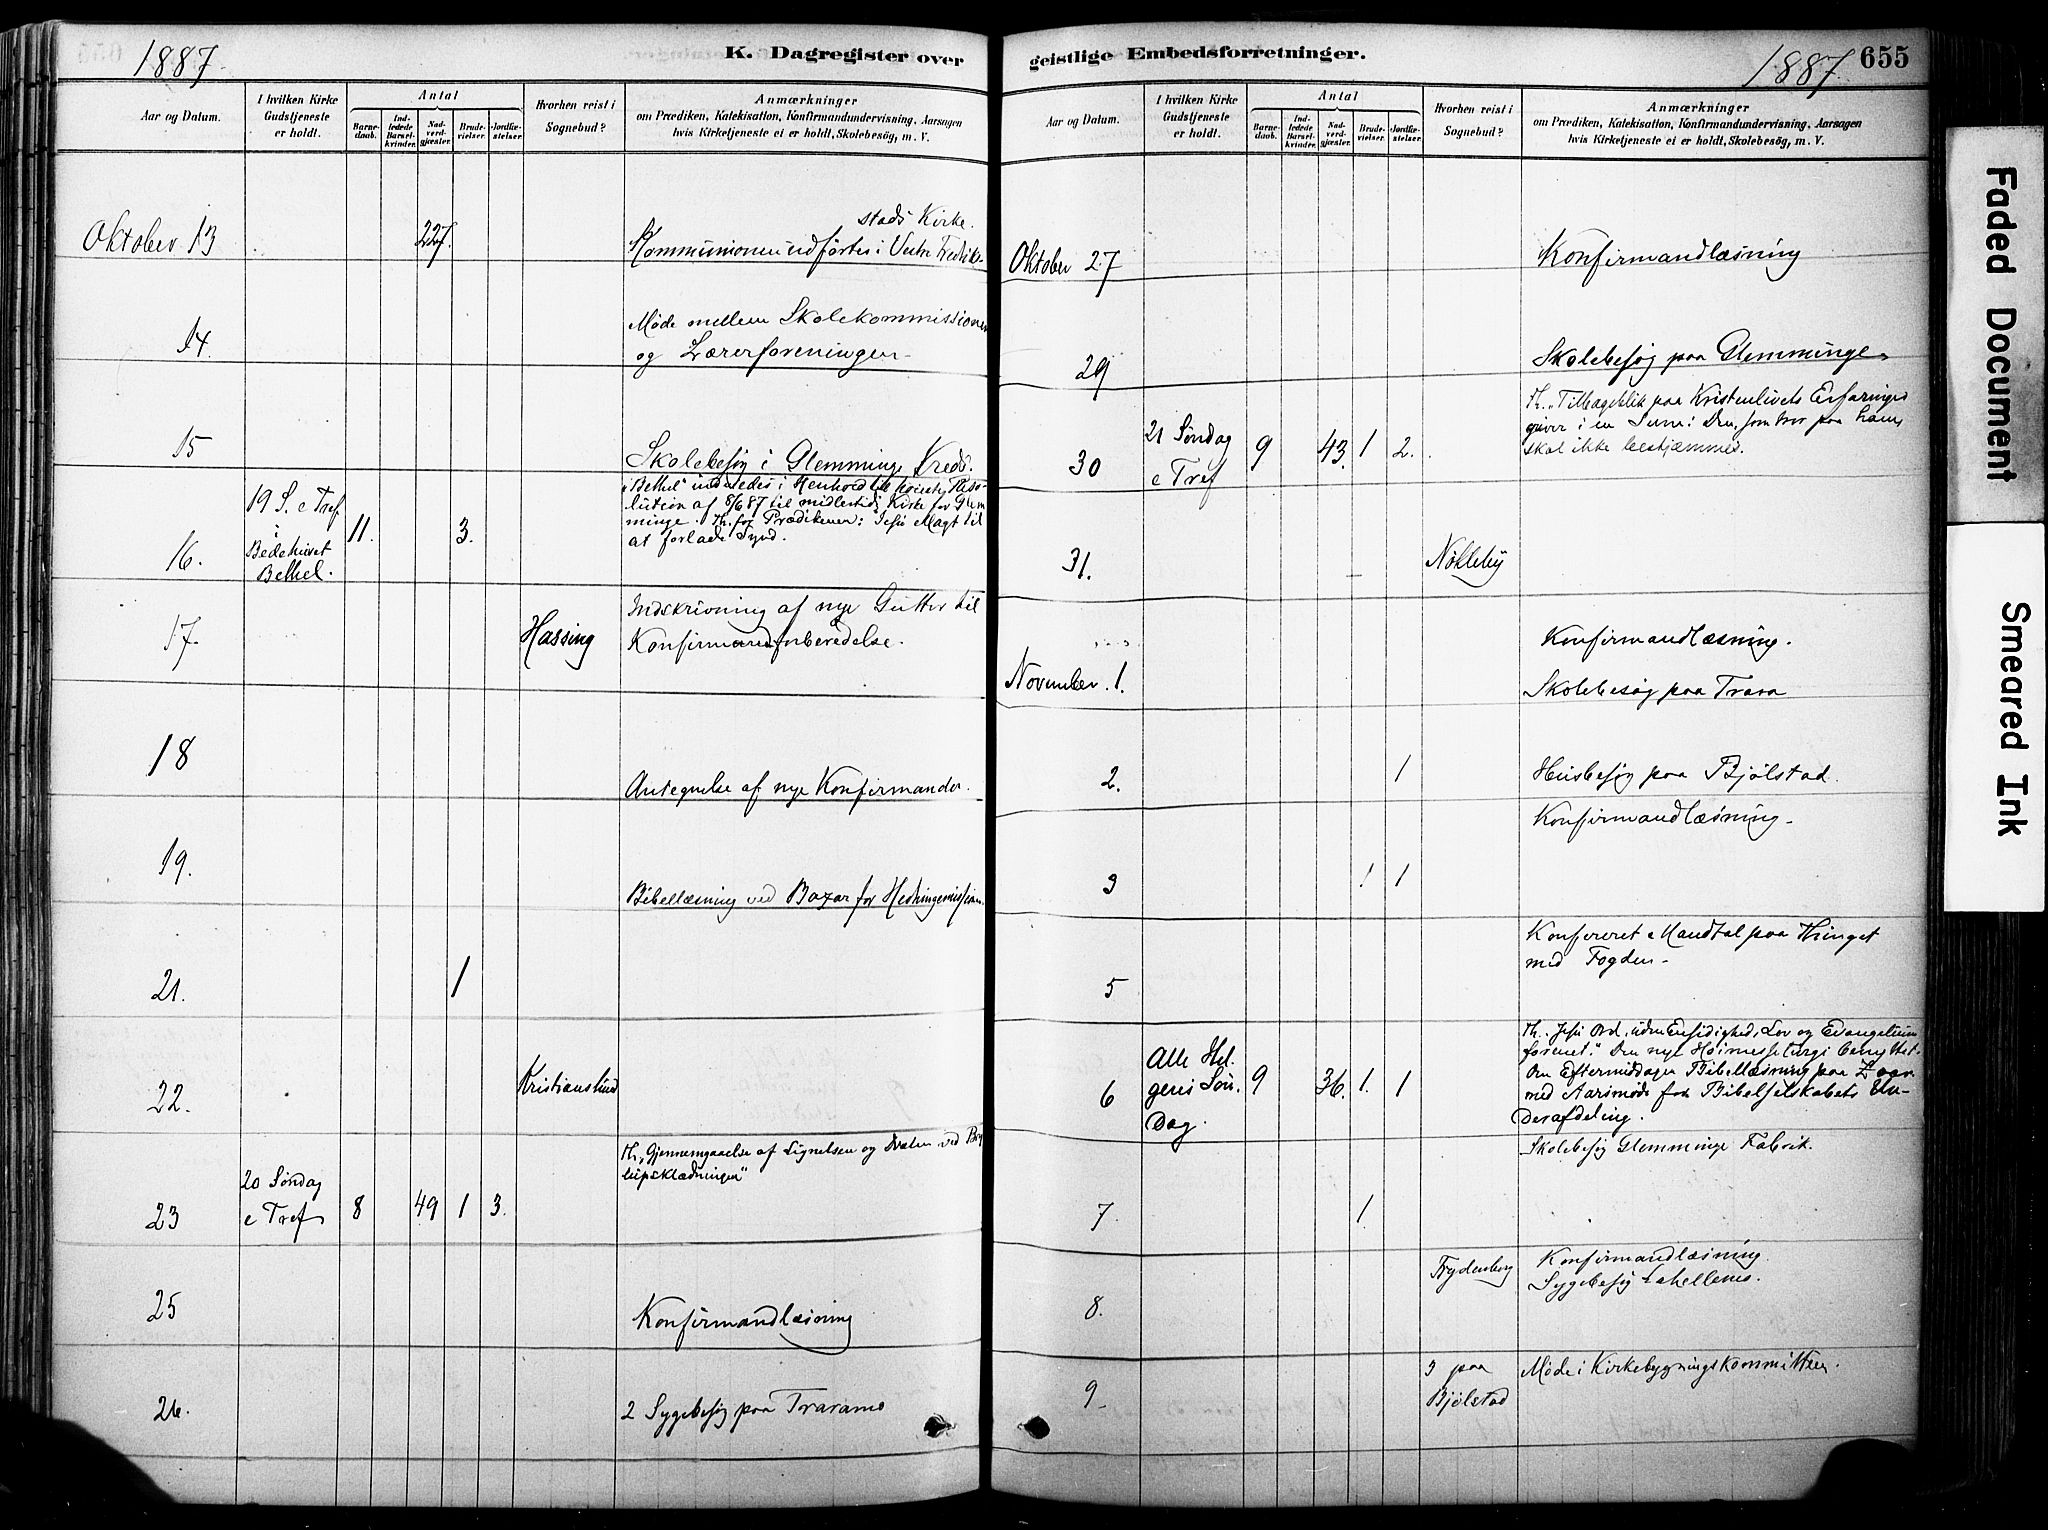 1887.
K. Dagregister over
Aar og Datum.
I hvilken Kirke
Gudstjeneste
er holdt.
Antal
Barne-
daab.
Ind-
ledede
Barsel-
kvinder.
Nad-
verd-
gjæster.
Brude-
vielser.
Jordfæ-
stelser.
Hvorhen reist i
Sognebud?
Anmærkninger
om Prædiken, Katekisation, Konfirmandundervisning, Aarsagen
hvis Kirketjeneste ei er holdt, Skolebesög, m. V.
Oktober 13
227.
stads Kirke.
Kommunionen udførtes i Vestre Fredrik-
14.
Møde mellem Skolekommissionen
og Lærerforeningen
15
Skolebesøg i Glemminge Kreds.
16.
19 S. e Tref.
i
Bedehuset
Bethel.
11.
3.
"Bethel" indviedes i Henhold til Reso-
lution af 8/6 87 til midlertidig Kirke for Glem
minge. Th. for Prædikenen: Jesu Magt til
at forlade Synd.
17.
Hassing
Indskrivning af nye Gutter til
Konfirmandforberedelse.
18
Antegnelse af nye Konfirmander.
19.
Bibellæsning ved Bazar for Hedningemission.
21.
1
22.
Kristianslund
23
20 Søndag
e Tref
8
49
1
3.
Th. "Gjennemgaaelse af Lignelsen og Dvælen ved Bryl
lupsklædningen"
25
Konfirmandlæsning
26.
2 Sygebesøg paa Traramo
geistlige Embedsforretninger.
1887.
655
Aar og Datum.
I hvilken Kirke
Gudstjeneste
er holdt.
Antal
Barne-
daab.
Ind-
ledede
Barsel-
kvinder.
Nad-
verd-
gjæster.
Brude-
vielser.
Jordfæ-
stelser.
Hvorhen reist i
Sognebud?
Anmærkninger
om Prædiken, Katekisation, Konfirmandundervisning, Aarsagen
hvis Kirketjeneste ei er holdt, Skolebesøg, m. V.
Oktober 27
Konfirmandlæsning
29
Skolebesøg paa Glemminge
30
21 Søndag
e Tref
9
43.
1
2.
Th. "Tilbageblik paa Kristenlivets Erfaringer
giver i en Sum: Den, som tror paa ham,
skal ikke beskjæmmes.
31.
Nøkleby
Konfirmandlæsning.
November 1.
Skolebesøg paa Trara
2.
1
Husbesøg paa Bjølstad.
Konfirmandlæsning.
3
1
1
5
Konfereret Mandtal paa Thinget
med Fogden
6
Alle Hel-
gens Søn-
dag.
9
36.
1.
1
Th. Jesu Ord, uden Ensidighed, Lov og Evangelium
forenet." Den nye Høimesseliturgi benyttet.
Om Eftermiddagen Bibellæsning paa
med Aarsmøde for Bibelselskabets Un-
derafdeling.
Skolebesøg Glemminge Fabrik.
7.
1.
8.
Frydenberg
Konfirmandlæsning.
Sygebesøg Lahellemo.
9
3 paa
Bjølstad
Møde i Kirkebygningskommitteen.
Faded Document
Smeared Ink